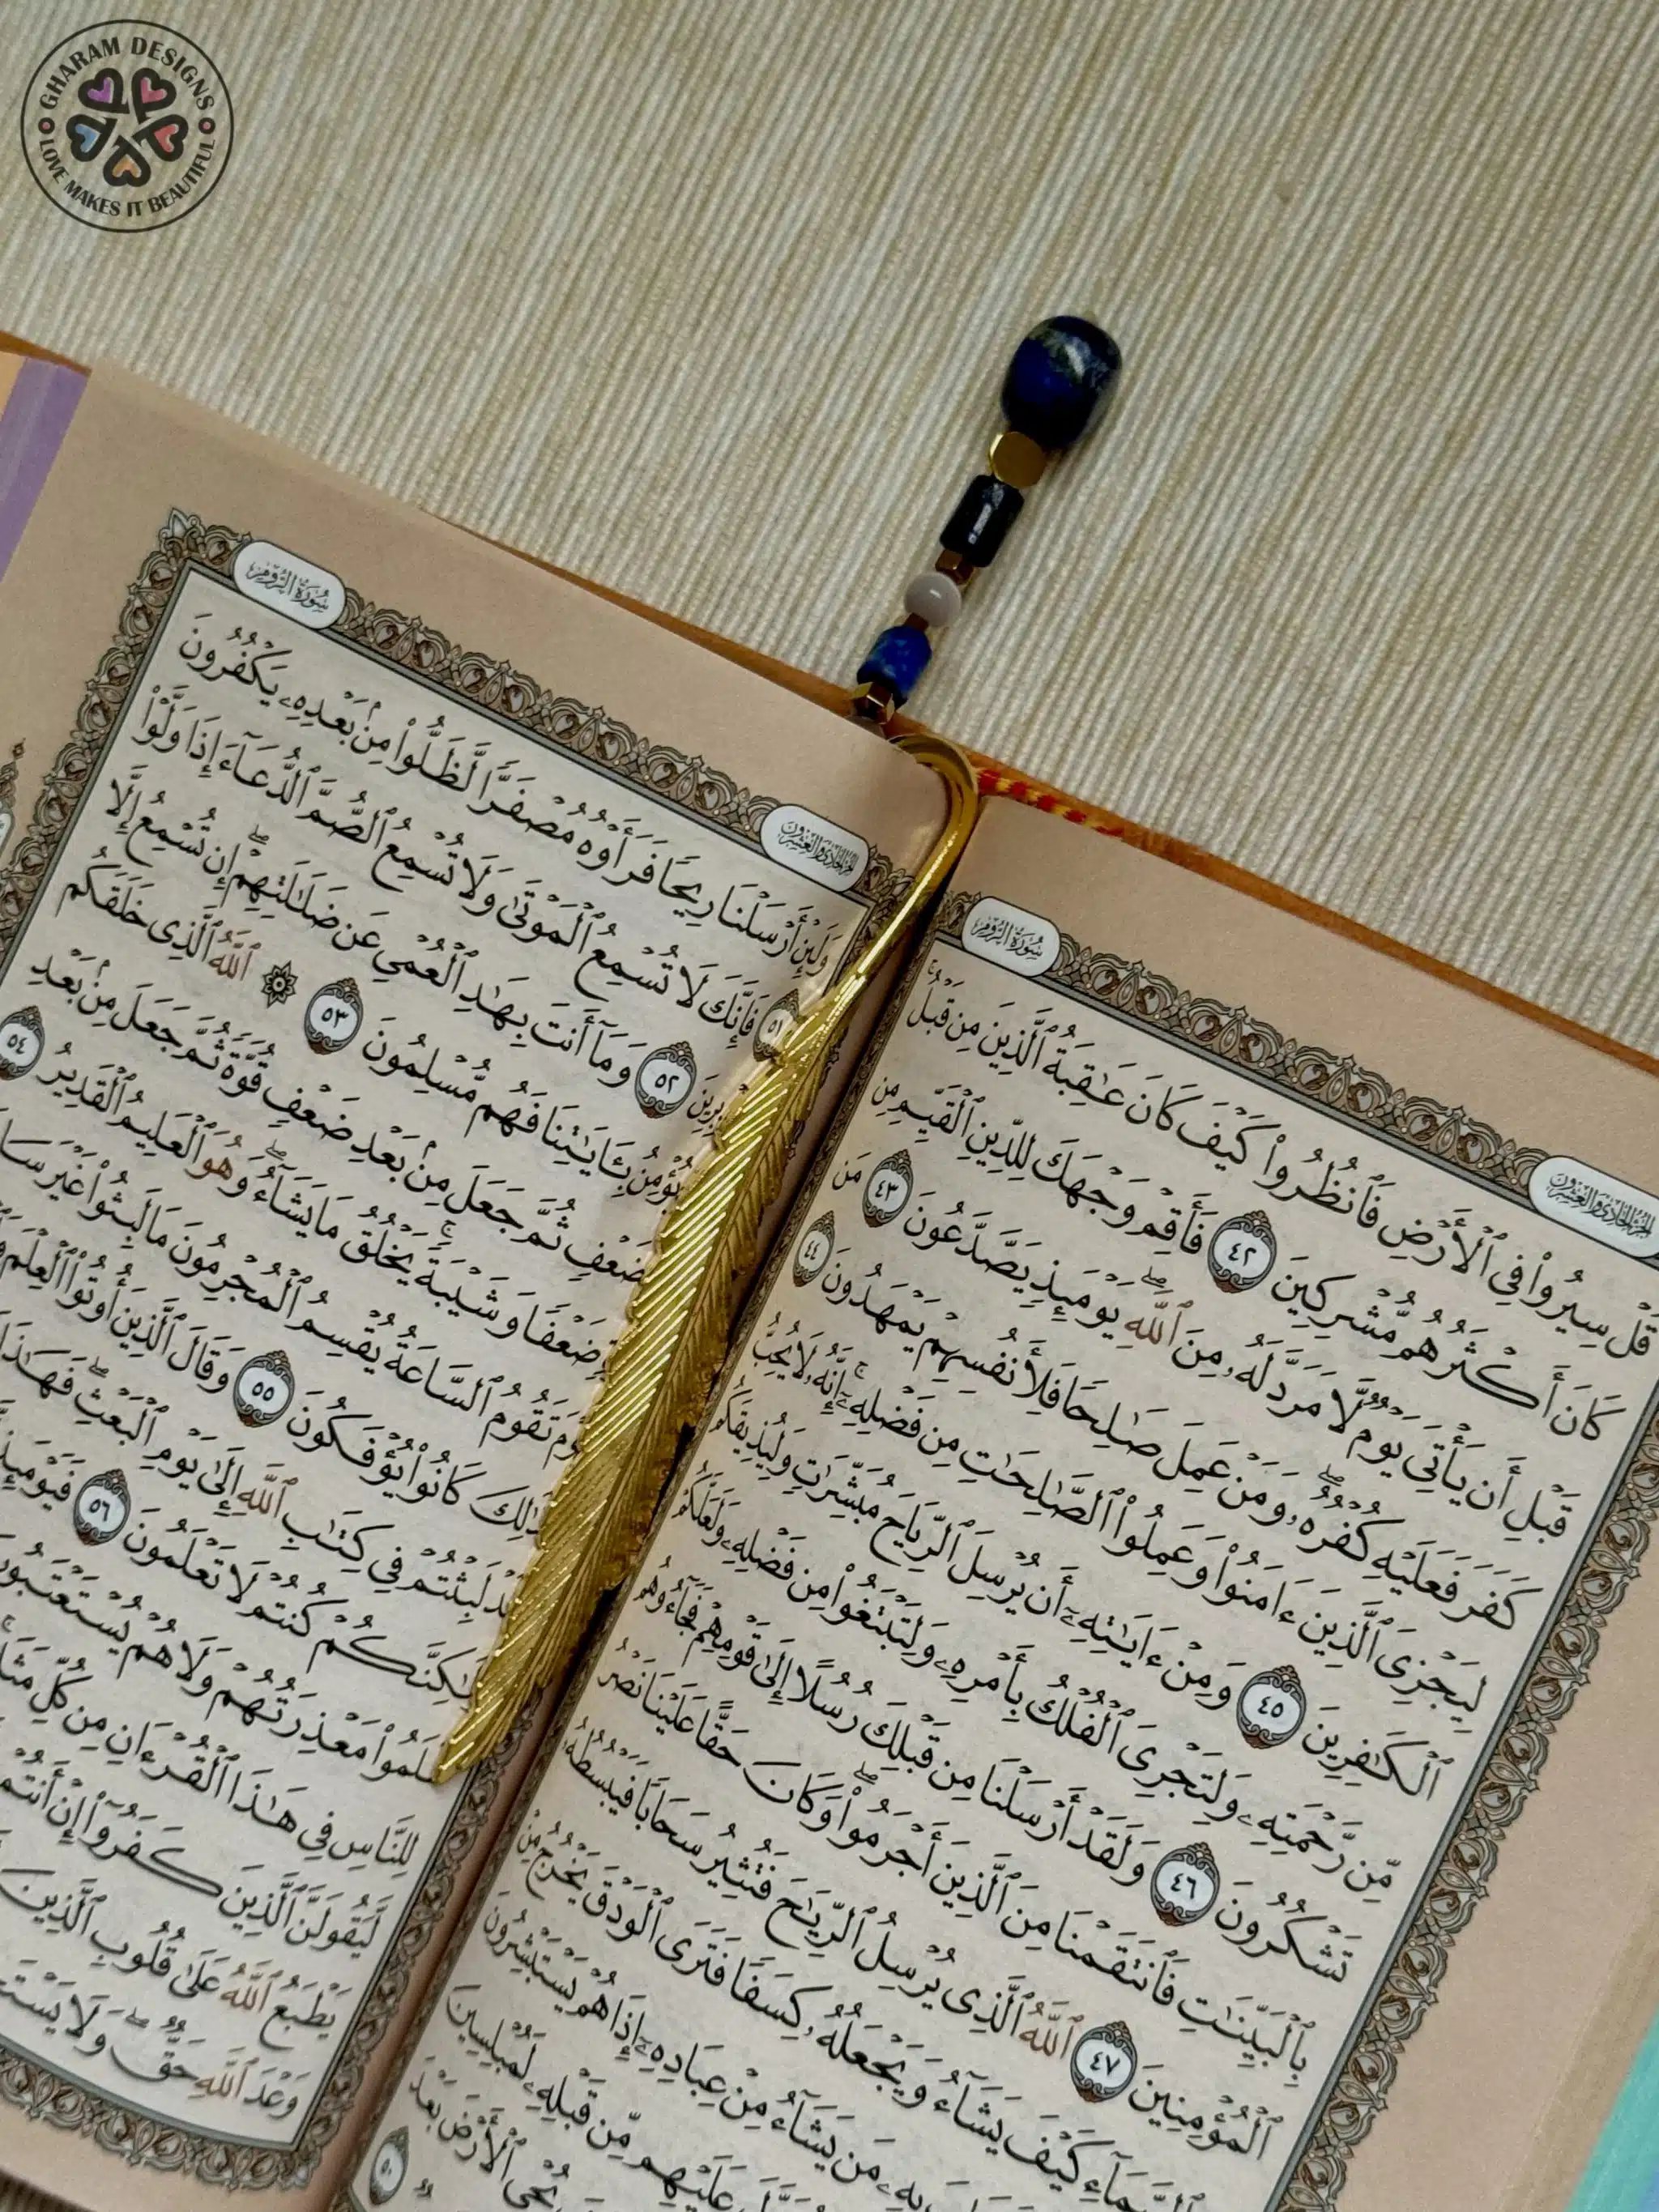 GHARAM DESIGNS
LOVE MAKES IT BEAUTIFUL
سُورَةُ الرُّومِ
الجُزْءُ الحَادِي وَالعِشْرُونَ
قُلْ سِيرُوا۟ فِى ٱلْأَرْضِ فَٱنظُرُوا۟ كَيْفَ كَانَ عَـٰقِبَةُ ٱلَّذِينَ مِن قَبْلُ ۚ
كَانَ أَكْثَرُهُم مُّشْرِكِينَ ٤٢ فَأَقِمْ وَجْهَكَ لِلدِّينِ ٱلْقَيِّمِ مِن
قَبْلِ أَن يَأْتِىَ يَوْمٌ لَّا مَرَدَّ لَهُۥ مِنَ ٱللَّهِ ۖ يَوْمَئِذٍ يَصَّدَّعُونَ ٤٣ مَن
كَفَرَ فَعَلَيْهِ كُفْرُهُۥ ۖ وَمَنْ عَمِلَ صَـٰلِحًا فَلِأَنفُسِهِمْ يَمْهَدُونَ ٤٤
لِيَجْزِىَ ٱلَّذِينَ ءَامَنُوا۟ وَعَمِلُوا۟ ٱلصَّـٰلِحَـٰتِ مِن فَضْلِهِۦٓ ۚ إِنَّهُۥ لَا يُحِبُّ
ٱلْكَـٰفِرِينَ ٤٥ وَمِنْ ءَايَـٰتِهِۦٓ أَن يُرْسِلَ ٱلرِّيَاحَ مُبَشِّرَٰتٍ وَلِيُذِيقَكُم
مِّن رَّحْمَتِهِۦ وَلِتَجْرِىَ ٱلْفُلْكُ بِأَمْرِهِۦ وَلِتَبْتَغُوا۟ مِن فَضْلِهِۦ وَلَعَلَّكُمْ
تَشْكُرُونَ ٤٦ وَلَقَدْ أَرْسَلْنَا مِن قَبْلِكَ رُسُلًا إِلَىٰ قَوْمِهِمْ فَجَآءُوهُم
بِٱلْبَيِّنَـٰتِ فَٱنتَقَمْنَا مِنَ ٱلَّذِينَ أَجْرَمُوا۟ ۖ وَكَانَ حَقًّا عَلَيْنَا نَصْرُ
ٱلْمُؤْمِنِينَ ٤٧ ٱللَّهُ ٱلَّذِى يُرْسِلُ ٱلرِّيَـٰحَ فَتُثِيرُ سَحَابًا فَيَبْسُطُهُۥ
كَيْفَ يَشَآءُ وَيَجْعَلُهُۥ كِسَفًا فَتَرَى ٱلْوَدْقَ يَخْرُجُ مِنْ
مَن يَشَآءُ مِنْ عِبَادِهِۦٓ إِذَا هُمْ يَسْتَبْشِرُونَ
عَلَيْهِم مِّن قَبْلِهِۦ لَمُبْلِسِينَ
يُحْىِ ٱلْأَرْضَ بَعْدَ
٥٠
سُورَةُ الرُّومِ
الجُزْءُ الحَادِي وَالعِشْرُونَ
وَلَئِنْ أَرْسَلْنَا رِيحًا فَرَأَوْهُ مُصْفَرًّا لَّظَلُّوا۟ مِنۢ بَعْدِهِۦ يَكْفُرُونَ
٥١ فَإِنَّكَ لَا تُسْمِعُ ٱلْمَوْتَىٰ وَلَا تُسْمِعُ ٱلصُّمَّ ٱلدُّعَآءَ إِذَا وَلَّوْا۟
٥٢ وَمَآ أَنتَ بِهَـٰدِ ٱلْعُمْىِ عَن ضَلَـٰلَتِهِمْ ۖ إِن تُسْمِعُ إِلَّا
يُؤْمِنُ بِـَٔايَـٰتِنَا فَهُم مُّسْلِمُونَ ٥٣ ۞ ٱللَّهُ ٱلَّذِى خَلَقَكُم
ضَعْفٍ ثُمَّ جَعَلَ مِنۢ بَعْدِ ضَعْفٍ قُوَّةً ثُمَّ جَعَلَ مِنۢ بَعْدِ
ضَعْفًا وَشَيْبَةً ۚ يَخْلُقُ مَا يَشَآءُ ۖ وَهُوَ ٱلْعَلِيمُ ٱلْقَدِيرُ ٥٤
تَقُومُ ٱلسَّاعَةُ يُقْسِمُ ٱلْمُجْرِمُونَ مَا لَبِثُوا۟ غَيْرَ
كَانُوا۟ يُؤْفَكُونَ ٥٥ وَقَالَ ٱلَّذِينَ أُوتُوا۟ ٱلْعِلْمَ
لَبِثْتُمْ فِى كِتَـٰبِ ٱللَّهِ إِلَىٰ يَوْمِ ٱلْبَعْثِ ۖ فَهَـٰذَا
كُنتُمْ لَا تَعْلَمُونَ ٥٦ فَيَوْمَئِذٍ
مَعْذِرَتُهُمْ وَلَا هُمْ يُسْتَعْتَبُونَ
لِلنَّاسِ فِى هَـٰذَا ٱلْقُرْءَانِ مِن كُلِّ
لَّيَقُولَنَّ ٱلَّذِينَ كَفَرُوٓا۟ إِنْ أَنتُمْ
يَطْبَعُ ٱللَّهُ عَلَىٰ قُلُوبِ ٱلَّذِينَ
وَعْدَ ٱللَّهِ حَقٌّ ۖ وَلَا